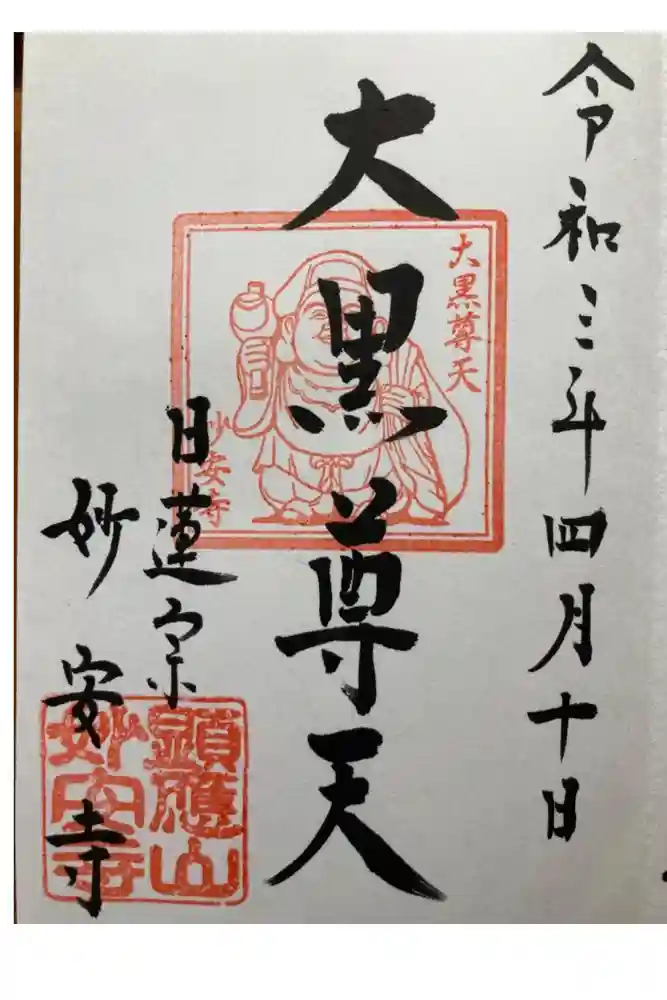 令和三年四月十日
大黒尊天
大黒尊天
日蓮宗
妙安寺
妙安寺
顕應山
妙安寺